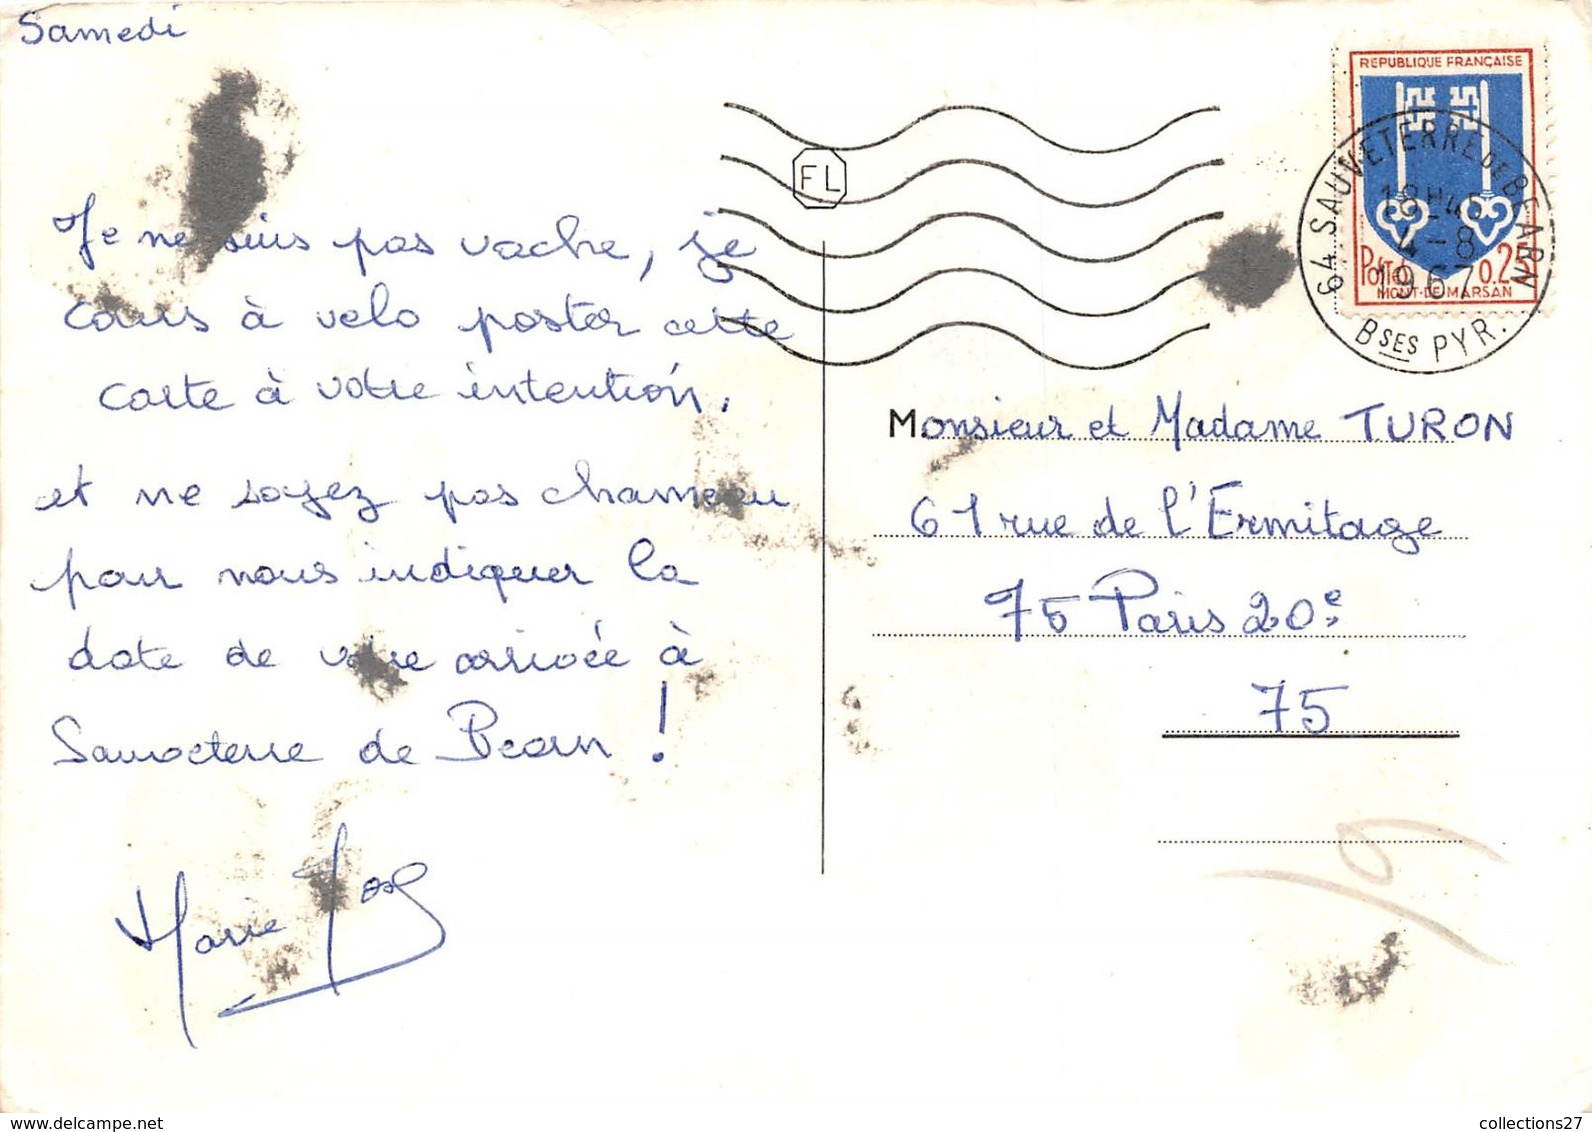 Samedi
Je ne suis pas vache, je
cours à velo poster cette
carte à votre intention.
et ne soyez pas chameau
pour nous indiquer la
date de votre arrivée à
Sauveterre de Bearn !
Marie José
FL
REPUBLIQUE FRANÇAISE
Postes 0.25
MONT-DE-MARSAN
64 SAUVETERRE DE BEARN
18H45
4-8
1967
BSES PYR.
Monsieur et Madame TURON
61 rue de l'Ermitage
75 Paris 20e
75
19
collections27